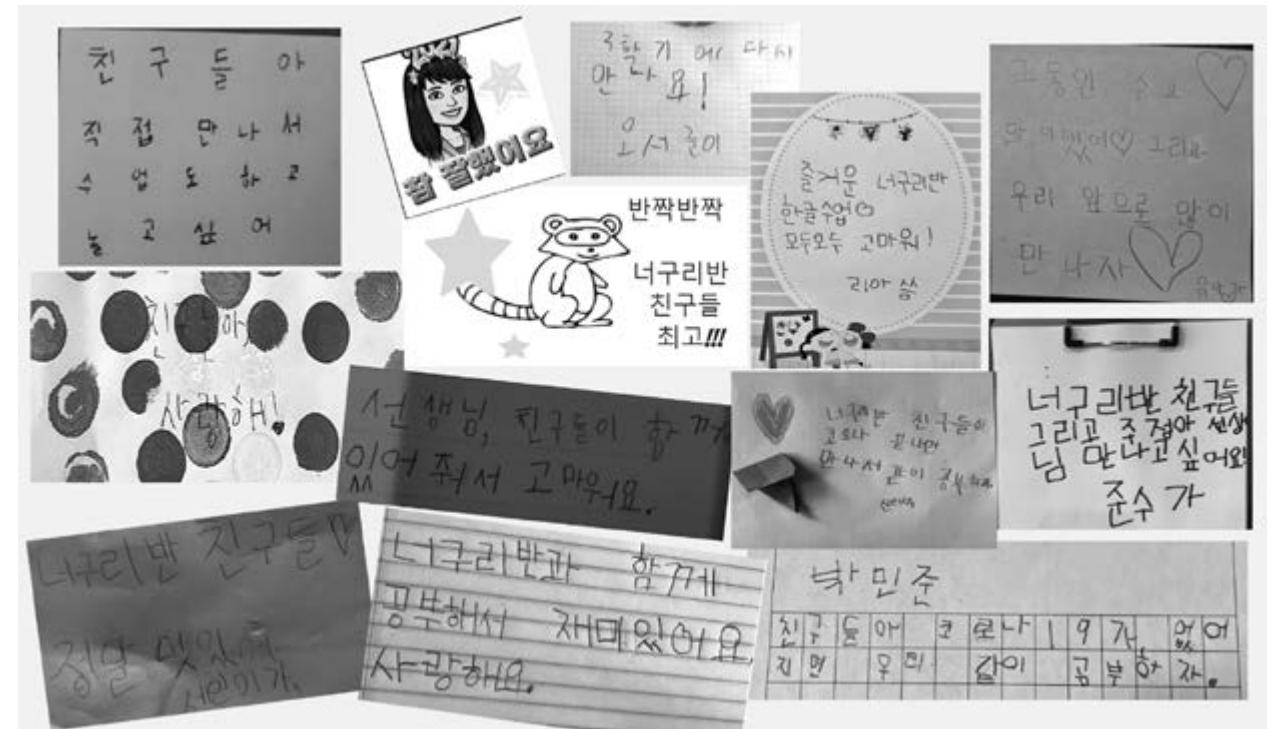 친구들아
직접 만나서
수업도하고
놀고싶어
참 잘했어요
3학기에 다시
만나요!
즐거운 너구리반
한글수업♡
모두모두 고마워!
리아 씀
그동안 수고
많이했어♡ 그리고
우리 앞으로 많이
만나자♡
반짝반짝
너구리반
친구들
최고!!!
친구들아,
사랑해!
선생님, 친구들이 함께
있어 줘서 고마워요.
너구리반 친구들아
코로나 끝나면
만나서 같이 공부하자
너구리반 친구들
그리곰 준정아 선생
님 만나고싶어요!
준수가
너구리반 친구들
정말 멋있어
너구리반과 함께
공부해서 재미있어요
사랑해요.
박민준
친구들아 코로나19가 없어
지면 우리 같이 공부하자.